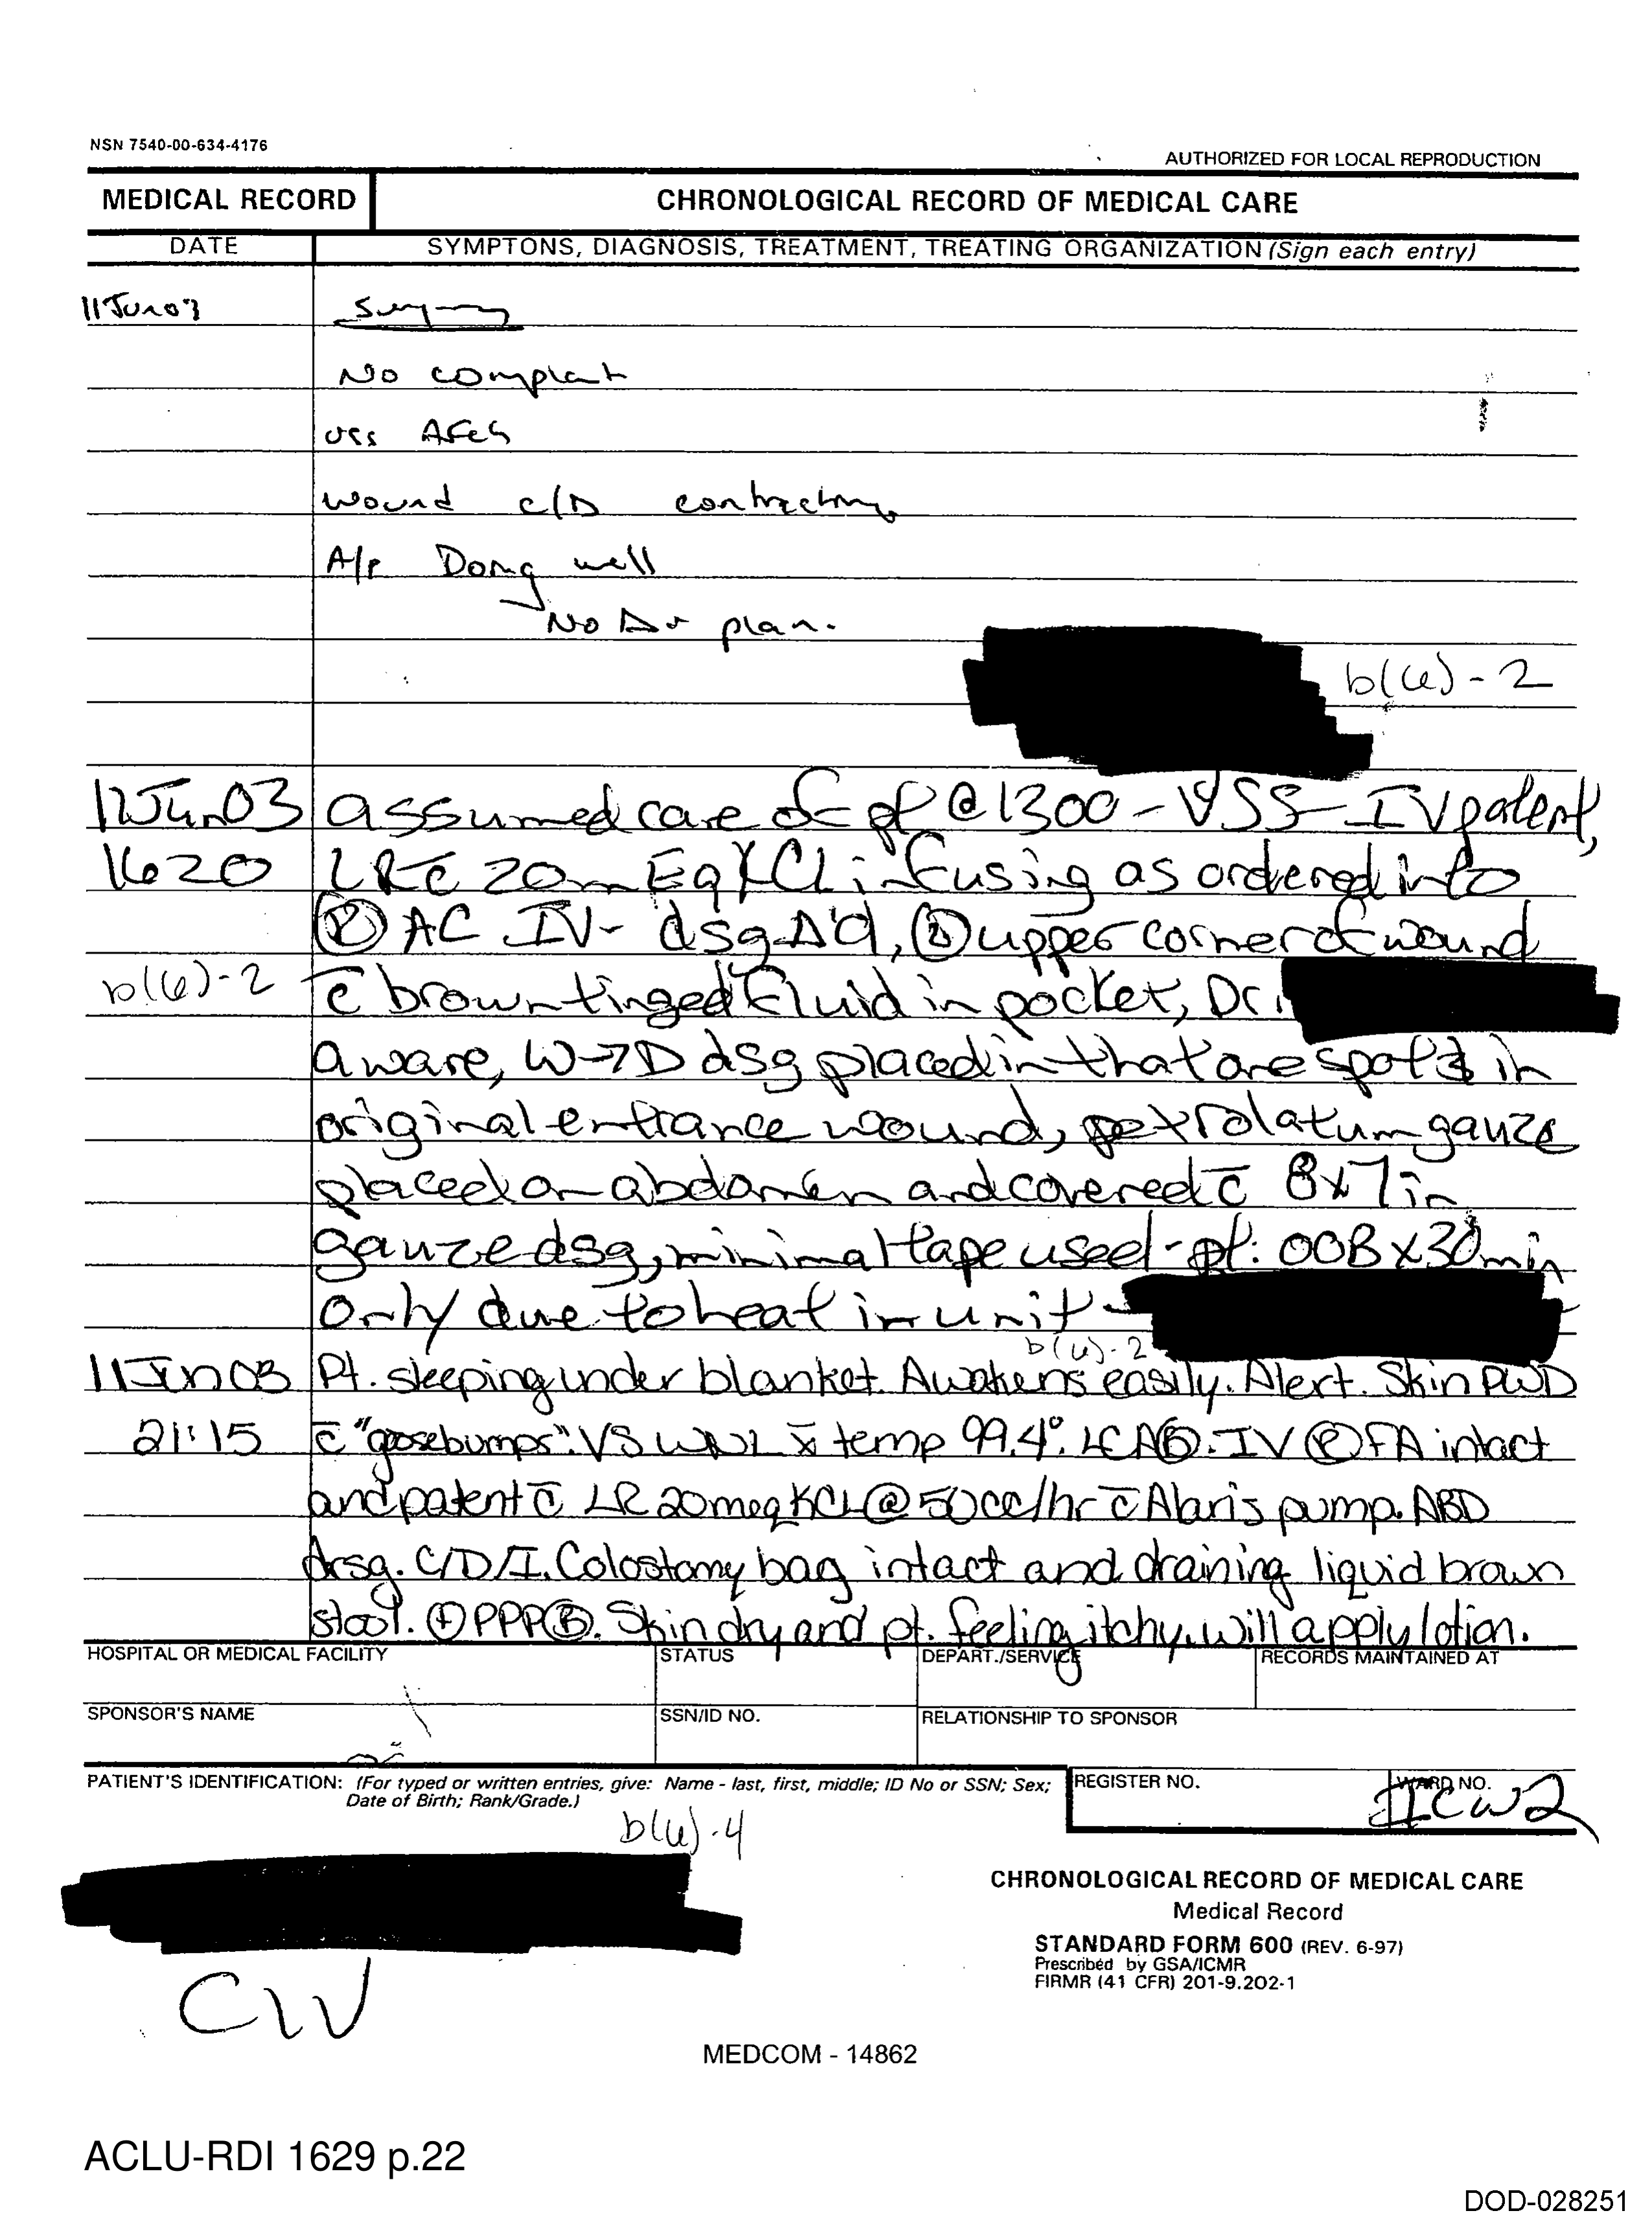 NSN 7540-00-634-4176
AUTHORIZED FOR LOCAL REPRODUCTION
MEDICAL RECORD
CHRONOLOGICAL RECORD OF MEDICAL CARE
DATE
SYMPTONS, DIAGNOSIS, TREATMENT, TREATING ORGANIZATION (Sign each entry)
11 Jun 03
No complaint
VSS
wound c/D contracting
A/P Doing well
No Δ plan.
b(6)-2
11 Jun 03 assumed care of pt @ 1300 - VSS - IV patent,
1620 LR c̄ 20 mEq KCl infusing as ordered into
AC IV - dsg Δ'd, upper corner of wound
b(6)-2 c̄ brown tinged fluid in pocket, Dr.
aware, W→D dsg placed in that are spot & in
original entrance wound, petrolatum gauze
placed on abdomen and covered c̄ 8x7 in
gauze dsg, minimal tape used - pt. OOB x 30 min
only due to heat in unit -
b(6)-2
11 Jun 03 Pt. sleeping under blanket. Awakens easily. Alert. Skin PWD
21:15 c̄ "goosebumps". VS WNL x̄ temp 99.4°. LCAⒷ. IV Ⓡ FA intact
and patent c̄ LR 20meq KCL @ 50cc/hr c̄ Alaris pump. ABD
drsg. C/D/I. Colostomy bag intact and draining liquid brown
stool. ⊕ PPP Ⓑ. Skin dry and pt. feeling itchy. will apply lotion.
HOSPITAL OR MEDICAL FACILITY
STATUS
DEPART./SERVICE
RECORDS MAINTAINED AT
SPONSOR'S NAME
SSN/ID NO.
RELATIONSHIP TO SPONSOR
PATIENT'S IDENTIFICATION: (For typed or written entries, give: Name - last, first, middle; ID No or SSN; Sex;
Date of Birth; Rank/Grade.)
REGISTER NO.
WARD NO.
ICW2
b(6)-4
CHRONOLOGICAL RECORD OF MEDICAL CARE
Medical Record
STANDARD FORM 600 (REV. 6-97)
Prescribed by GSA/ICMR
FIRMR (41 CFR) 201-9.202-1
CIV
MEDCOM - 14862
ACLU-RDI 1629 p.22
DOD-028251